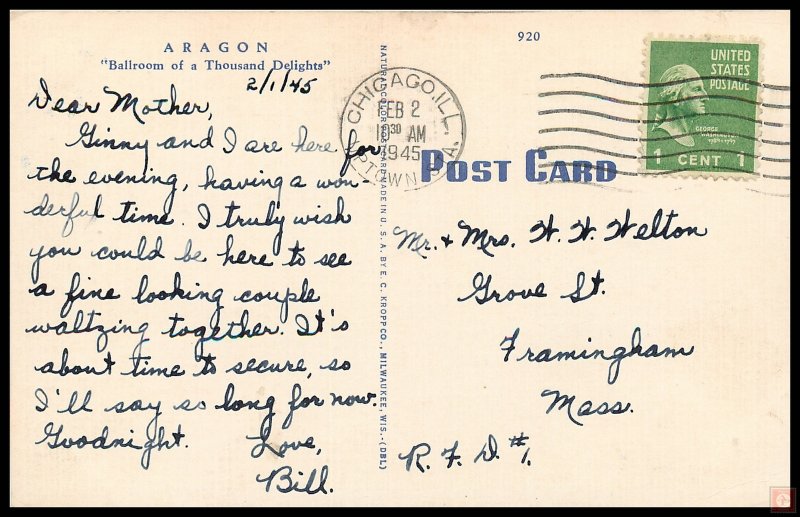 ARAGON
"Ballroom of a Thousand Delights"
2/1/45
Dear Mother,
Ginny and I are here for
the evening, having a won-
derful time. I truly wish
you could be here to see
a fine looking couple
waltzing together. It's
about time to secure, so
I'll say so long for now.
Goodnight. Love,
Bill.
NATURAL COLOR POST CARD MADE IN U. S. A. BY E. C. KROPP CO., MILWAUKEE, WIS.-(DBL)
920
CHICAGO, ILL.
FEB 2
12 30 AM
1945
UPTOWN STA.
UNITED
STATES
POSTAGE
GEORGE
WASHINGTON
1789-1797
1 CENT 1
POST CARD
Mr. + Mrs. W. W. Welton
Grove St.
Framingham
Mass.
R. F. D. #1.